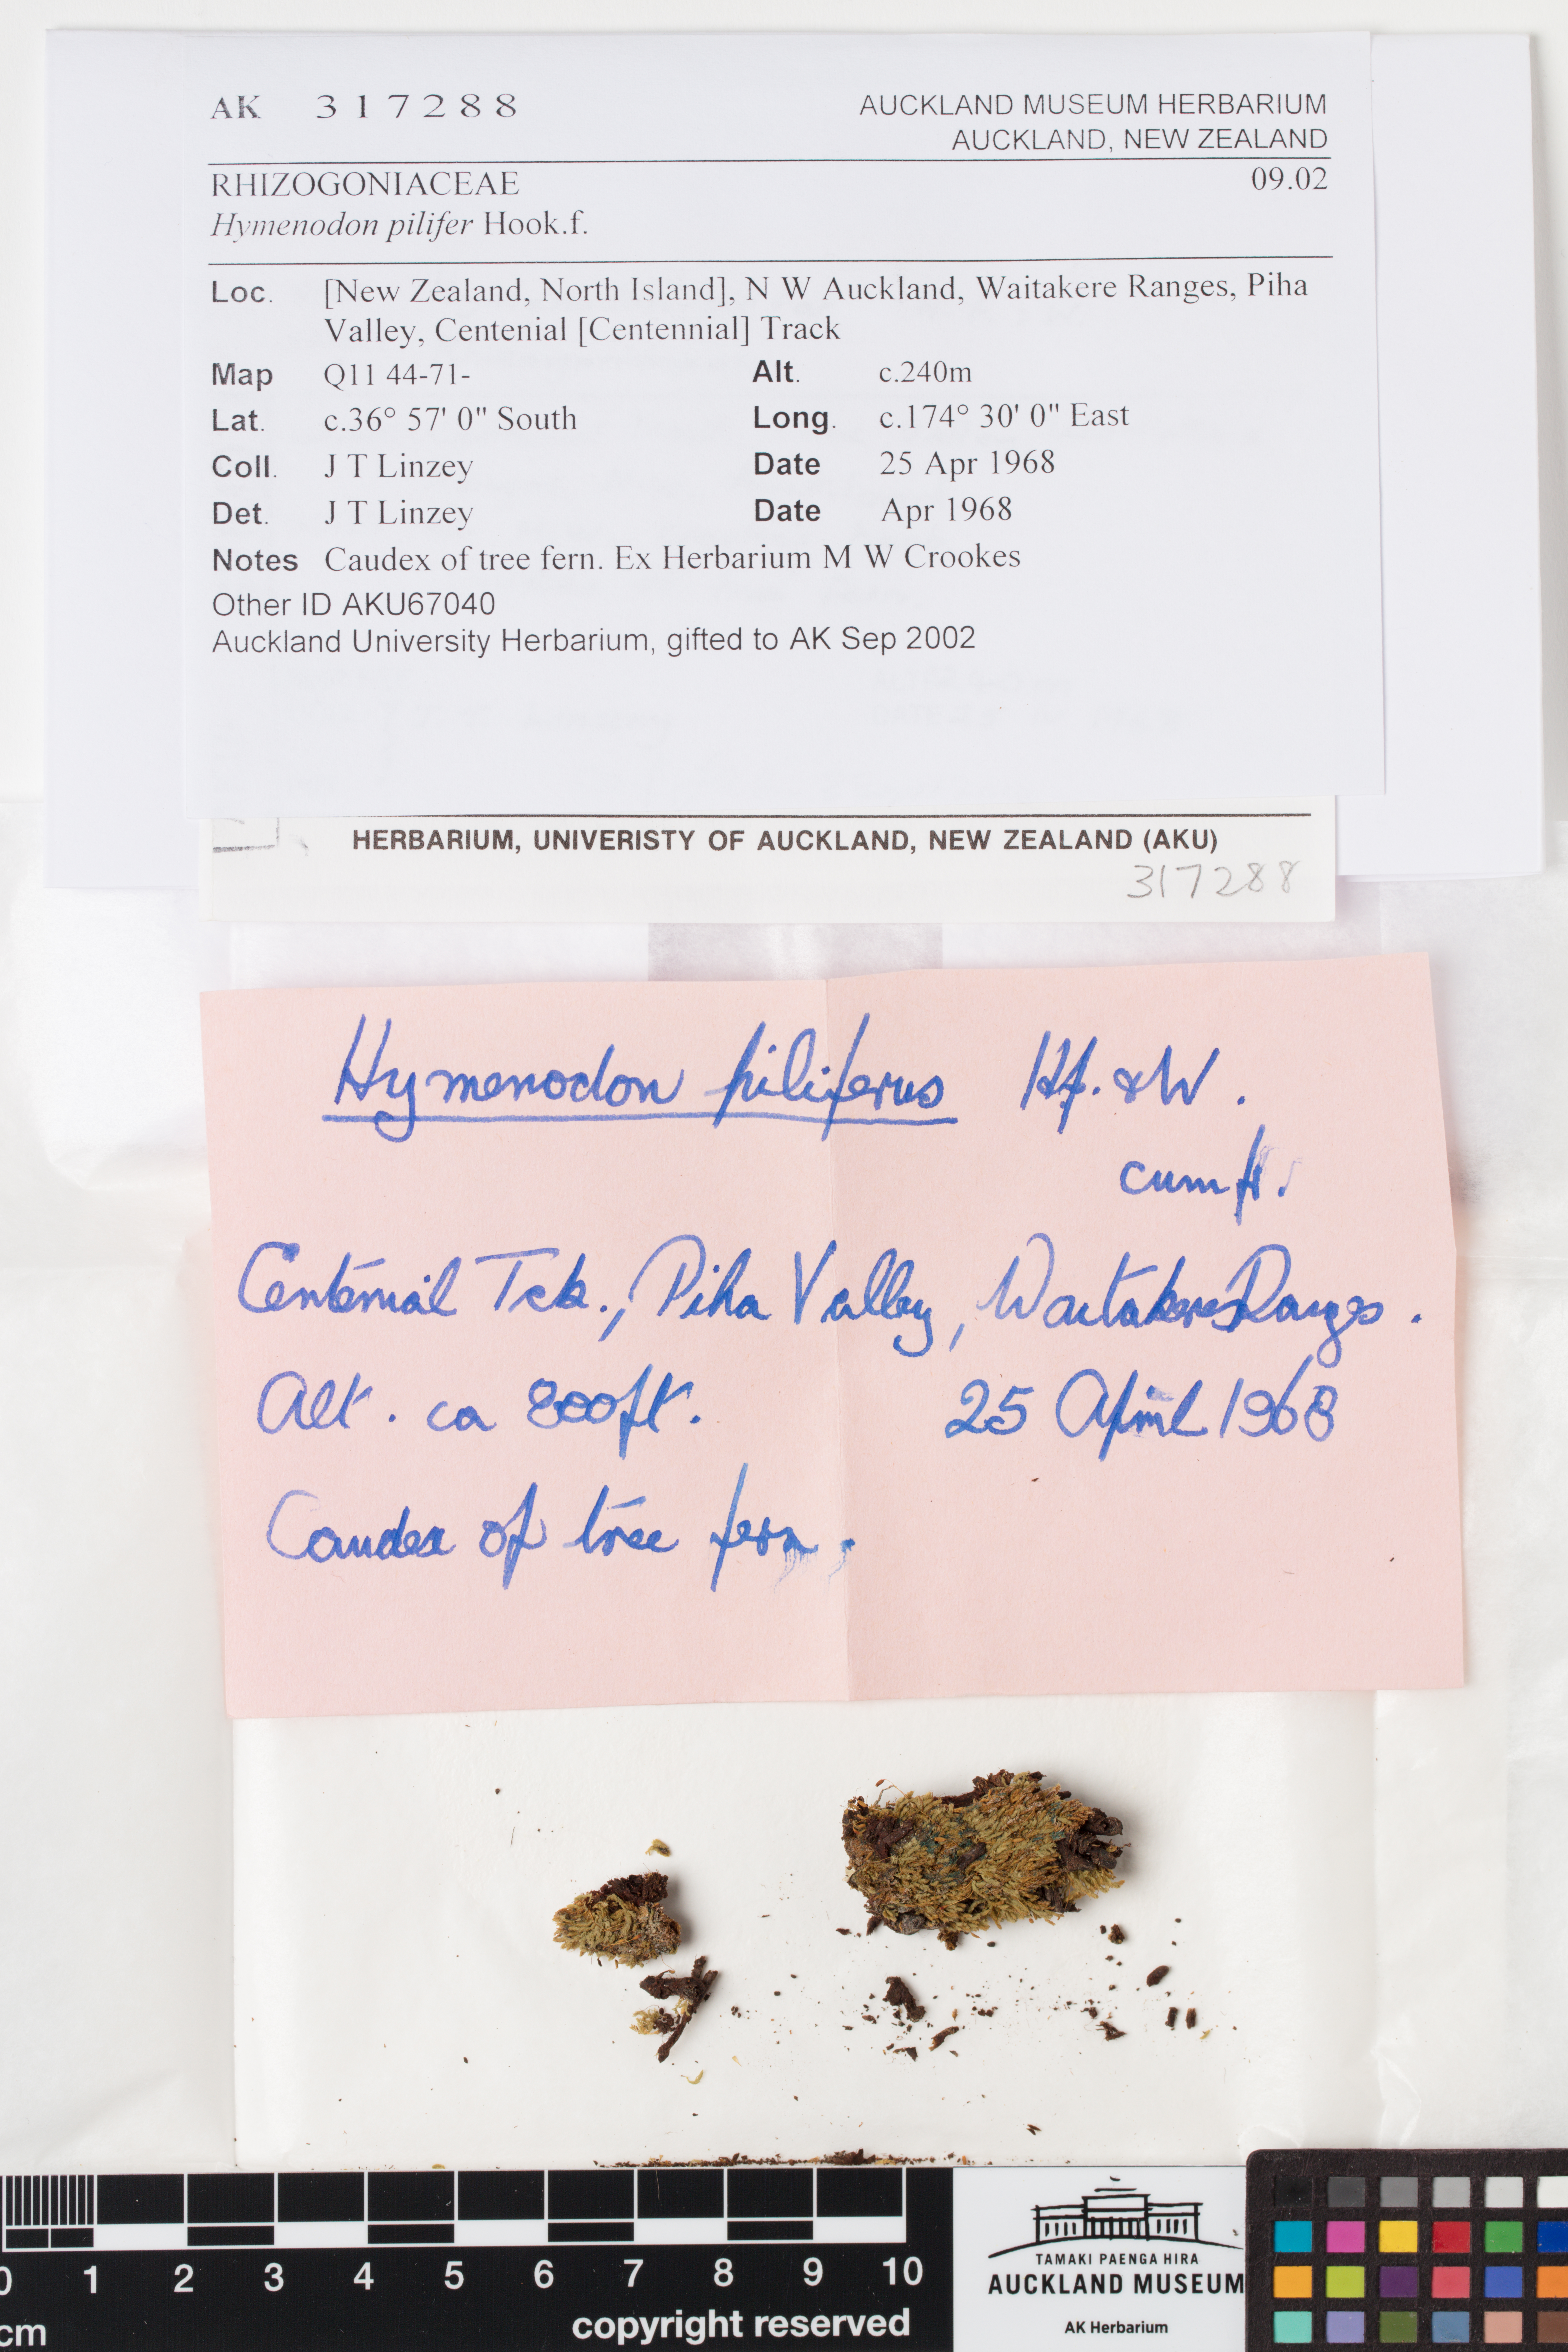 AK 317288
AUCKLAND MUSEUM HERBARIUM
AUCKLAND, NEW ZEALAND
RHIZOGONIACEAE 09.02
Hymenodon pilifer Hook.f.
Loc. [New Zealand, North Island], N W Auckland, Waitakere Ranges, Piha
Valley, Centenial [Centennial] Track
Map Q11 44-71- Alt. c.240m
Lat. c.36° 57' 0" South Long. c.174° 30' 0" East
Coll. J T Linzey Date 25 Apr 1968
Det. J T Linzey Date Apr 1968
Notes Caudex of tree fern. Ex Herbarium M W Crookes
Other ID AKU67040
Auckland University Herbarium, gifted to AK Sep 2002
HERBARIUM, UNIVERISTY OF AUCKLAND, NEW ZEALAND (AKU)
317288
Hymenodon piliferus Hf. & W.
cum fr.
Centenial Tck., Piha Valley, Waitakere Ranges.
Alt. ca 800ft. 25 April 1968
Caudex of tree fern.
0 1 2 3 4 5 6 7 8 9 10
cm copyright reserved
TAMAKI PAENGA HIRA
AUCKLAND MUSEUM
AK Herbarium